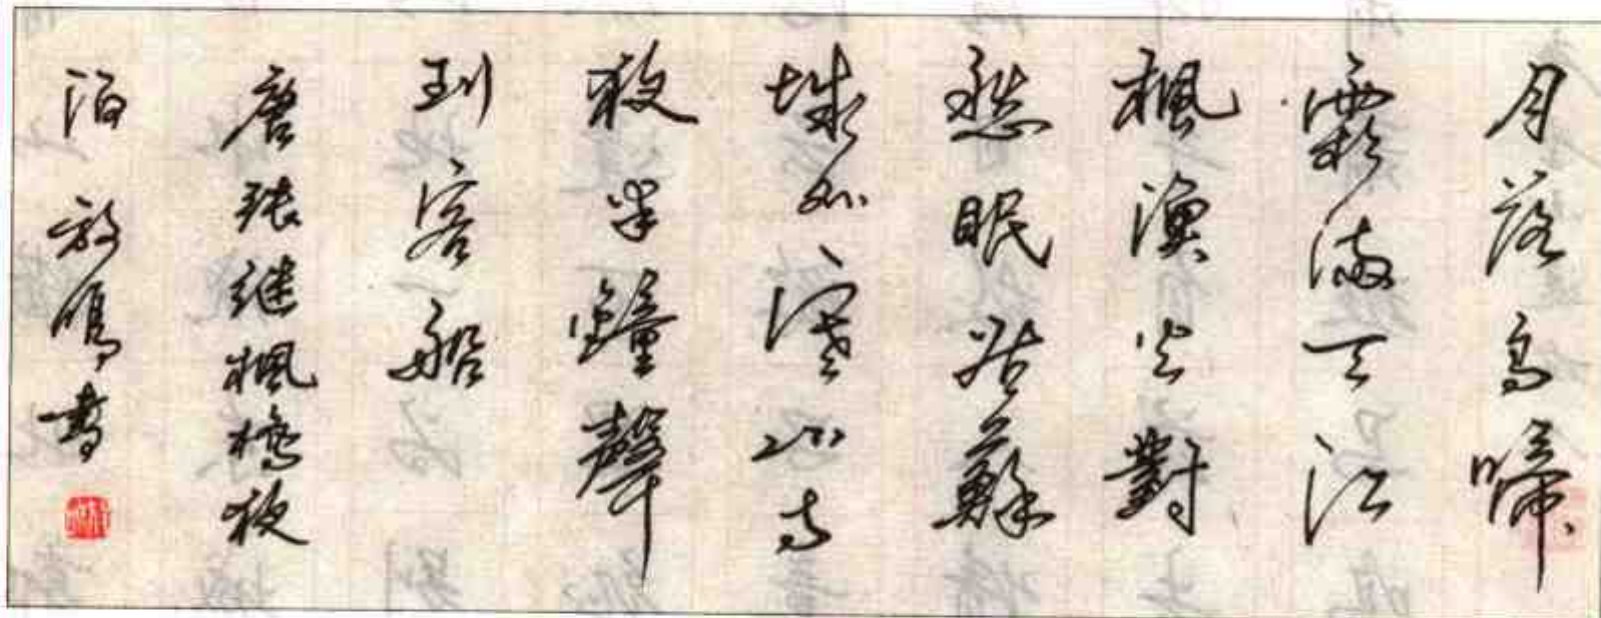 月落烏啼
霜滿天江
楓漁火對
愁眠姑蘇
城外寒山寺
夜半鐘聲
到客船
唐張继楓橋夜
泊 放鳴書